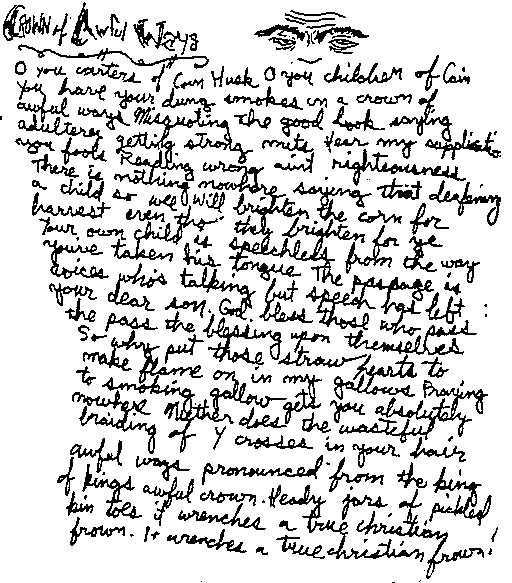 Crown of Awful Ways
O you carters of Corn Husk O you children of Cain
You have your dung smokes in a crown of
awful ways Misquoting the good book saying
adulterer getting strong mits Hear my supplicatio
you fools Reading wrong aint righteousness
There is nothing nowhere saying that deafening
a child so wee will brighten the corn for
harvest even tho' they brighten for ye
Your own child is speechless from the way
you've taken his tongue The passage is
voices who's talking but speech has left :
your dear son, God bless those who pass
the pass the blessing upon themselves
So why put those straw hearts to
make flame on in my gallows Praying
to smoking gallow gets you absolutely
nowhere Neither does the wasteful
braiding of Y crosses in your hair
awful ways pronounced from the king
of kings awful crown. Heady jars of pickled
kin toes it wrenches a true christian
frown. It wrenches a true christian frown!